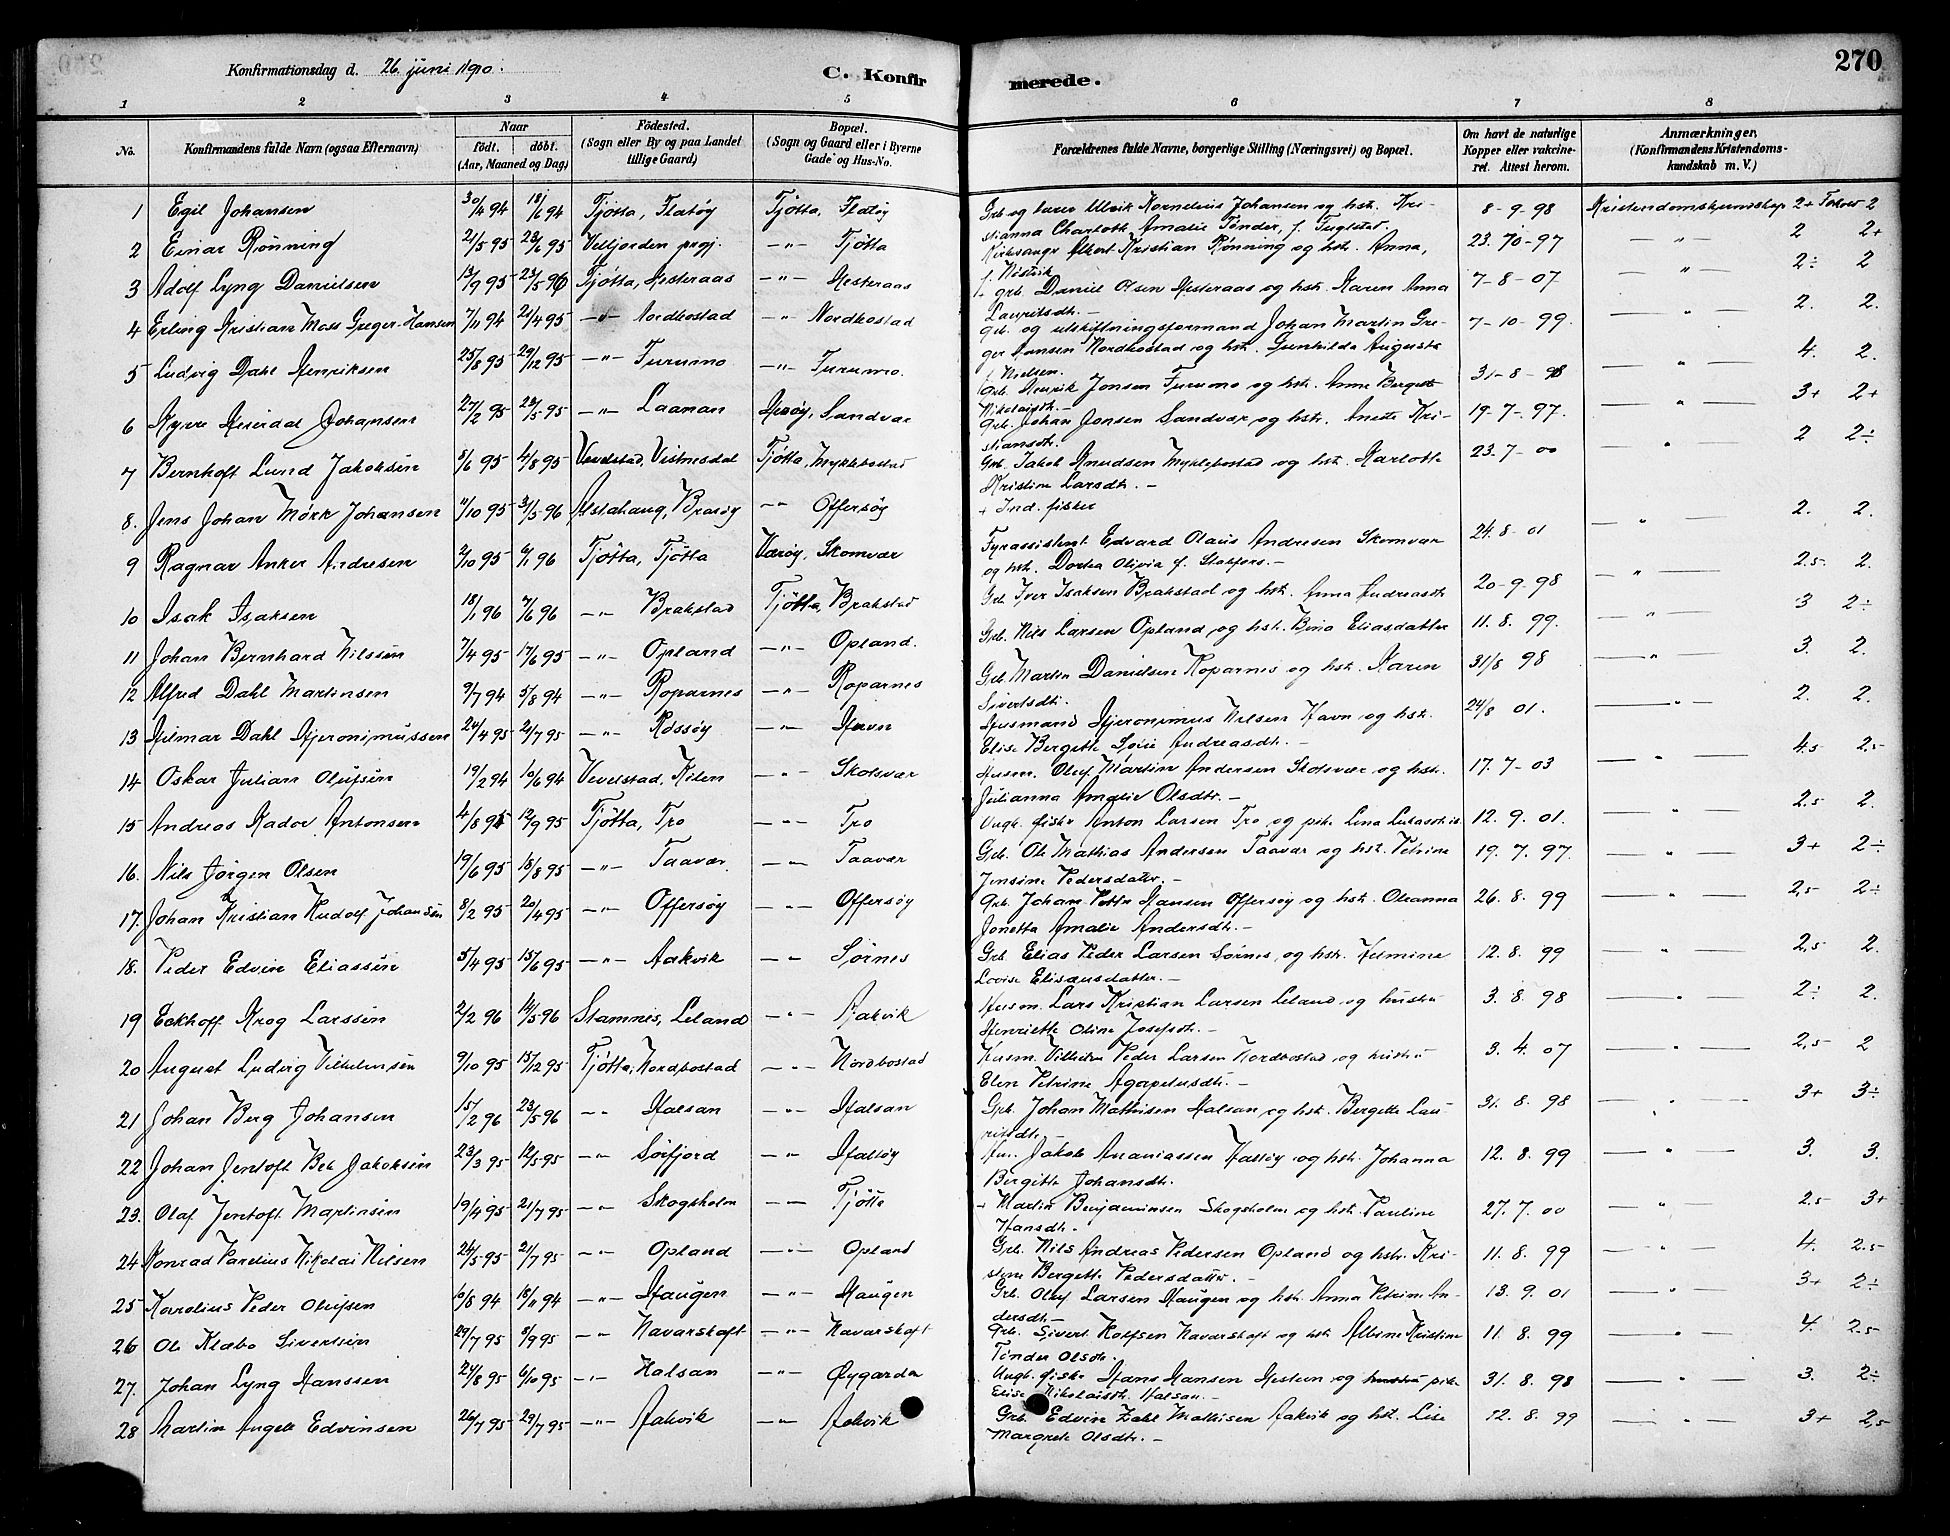 270
Konfirmationsdag d. 26. juni 1910.
C. Konfirmerede.
1 2 3 4 5 6 7 8
No. Konfirmandens fulde Navn (ogsaa Efternavn) Naar födt. döbt. (Aar, Maaned og Dag) Födested. (Sogn eller By og paa Landet tillige Gaard) Bopæl. (Sogn og Gaard eller i Byerne Gade og Hus-No. Forældrenes fulde Navne, borgerlige Stilling (Næringsvei) og Bopæl. Om havt de naturlige Kopper eller vakcineret. Attest herom. Anmærkninger, (Konfirmandens Kristendomskundskab m. V.)
1 Egil Johansen 30/4 94 18/6 94 Tjøtta, Flatøy Tjøtta, Flatøy Grb og lærer Ulrik Kornelius Johansen og hst. Kri- 8-9-98 Kristendomskjennskap 2+ 2
stianna Charlotte Amalie Tønder, f. Fuglstad.
2 Einar Rønning 21/5 95 23/6 95 Velfjorden prgj. -"- Tjøtta Kirkesanger Albert Kristian Rønning og hst. Anna, 23. 10-97 -"- 2 2+
f. Nistvik
3 Adolf Lyng Danielsen 13/9 95 23/5 96 Tjøtta, Hesteraas -"- Hesteraas grb. Daniel Olsen Hesteraas og hst. Karen Anna 7-8-07 -"- 2÷ 2
Lauritsdt. -
4 Erling Kristian Moss Greger-Hansen 7/11 94 21/4 95 -"- Nordbostad -"- Nordbostad grb. og utskiftningsformand Johan Martin Gre- 7-10-99. -"- 2. 2.
ger Hansen Nordbostad og hst. Gunhilda Augusta
f. Nielsen.
5 Ludvig Dahl Henriksen 25/8 95 29/12 95 -"- Furumo -"- Furumo. Grb. Henrik Jonsen Furumo og hst. Anne Bergette 31-8-98 -"- 4. 2.
Nikolaisdt. -
6 Kyrre Heierdal Johansen 27/2 95 -"- Laanan Herøy, Sandvær Grb. Johan Jonsen Sandvær og hst. Anette Kri- 19-7-97. -"- 3+ 2+
stiansdt.
7 Bernhoft Lund Jakobsen 5/6 95 4/8 95 Vevelstad, Vistnesdal Tjøtta, Myklebostad Grb. Jakob Knudsen Myklebostad og hst. Karlotte 23. 7-00 " 2 2÷
Kristine Larsdtr. -
8. Jens Johan Mörk Johansen 11/10 95 31/5 96 Alstahaug, Brasøy -"- Offersøy + Ind. fisker -"- 2. 2.
9 Ragnar Anker Andresen 2/10 95 6/1 96 Tjøtta, Tjøtta Værøy, Skomvær Fyrassistent Edvard Olaus Andresen Skomvær 24. 8-01 -"- 2.5- 2.
og hst. Dortea Olivia f.
10 Isak Isaksen 18/1 96 7/6 96 -"- Brakstad Tjøtta, Brakstad Grb Iver Isaksen Brakstad og hst. Anna Andreasdt 20-9-98 -"- 3 2÷
11 Johan Bernhard Nilssen 7/4 95 17/6 95 -"- Opland -"- Opland. Grb. Nils Larsen Opland og hst. Bina Eliasdatter 11. 8. 99. -"- 3. 2.
12 Alfred Dahl Martinsen 9/7 94 5/8 94 -"- Roparnes -"- Roparnes Grb Martin Danielsen Roparnes og hst. Karen 31/8 98 -"- 2. 2.
Sivertsdt.
13 Hilmar Dahl Hjeronimussen 24/4 95 21/7 95 -"- Rossøy -"- Havn Husmand Hjeronimus Nilsen Havn og hst. 24/8 01. -"- 4.5 2.5-
Elise Bergette Andreasdt. -
14 Oskar Julian Olufsen 19/2 94 10/6 94 Vevelstad, Kilen -"- Skotsvær Husm. Oluf Martin Andersen Skotsvær og hst. 17. 7-03 -"- 2.5 2.
Julianna Amalie Olsdtr. -
15 Andreas Rador Antonsen 4/8 95 12/9 95 Tjøtta, Tro -"- Tro Ungk. fisker Anton Larsen Tro og pike Lina 12. 9. 01. -"-
16. Nils Jörgen Olsen 19/6 95 18/8 95 -"- Taavær -"- Taavær Grb. Ole Mathias Andersen Taavær og hst. Petrine 19. 7. 97. -"- 3+ 2÷
Jensine Pedersdatter. -
17. Johan Kristian Rudolf Johansen 8/2 95 20/4 95 -"- Offersøy -"- Offersøy Grb. Johan Petter Hansen Offersøy og hst. Oleanna 26. 8. 99 -"- 2,5- 2÷
Jonetta Amalie Andersdt. -
18. Peder Edvin Eliassen 5/4 95 15/6 95 -"- Aakvik -"- Sørnes Grb. Elias Peder Larsen Sørnes, og hst. Hermine 12. 8. 99 -"- 2,5 2.
Lovise Elisæusdatter. -
19 Eckhoff Krog Larssen 2/2 96 14/5 96 Stamnes, Leland -"- Aakvik Husm. Lars Kristian Larsen Leland og hustru 3. 8. 98 -"- 2÷ 2.
Henriette Oline Josefsdt. -
20 August Ludvig Vilhelmsen 9/10 95 15/12 95 Tjøtta, Nordbostad -"- Nordbostad Husm. Vilhelm Peder Larsen Nordbostad og hustru 3. 4. 07 -"- 2,5- 2
Elen Petrine Agapetusdt. -
21 Johan Berg Johansen 15/2 96 23/5 96 -"- Halsan -"- Halsan Grb. Johan Mathisen Halsan og hst. Bergette Lau- 31. 8. 98 -"- 3+ 3÷
ritsdt.
22 Johan Jentoft Bek Jakobsen 23/3 95 12/5-95 -"- Sørfjord -"- Haltøy Hm. Jakob Ananiassen Haltøy og hst. Johanna 12. 8. 99 -"- 3. 3.
Bergitte Johansdt.
23. Olaf Jentoft Martinsen 19/4 95 21/7 95 -"- Skogsholm -"- Tjøtta + Martin Benjaminsen Skogsholm og hst. Pauline 27. 7. 00 -"- 2.5 3+
Hansdt. -
24 Konrad Parelius Nikolai Nilsen 24/5 95 21/7 95 -"- Opland -"- Opland Grb. Nils Andreas Pedersen Opland og hst. Kri- 11. 8. 99 -"- 4. 2.5-
stine Bergette Pedersdatter. -
25 Karelius Peder Olufsen 10/8 94 18/11 94 -"- Haugen -"- Haugen Grb. Oluf Larsen Haugen og hst. Anna Petrine An- 13. 9. 01 -"- 3+ 2÷
dersdt. -
26 Ole Klæbo Sivertsen 29/7 95 8/9 95 -"- Navarskoft -"- Navarskoft Grb. Sivert Rolfsen Navarskoft og hst. Albine Kristine 11. 8. 99 -"- 4. 2.5
Tønder Olsdt.
27. Johan Lyng Hanssen 24/8 95 6/10 95 -"- Halsan -"- Øygarden Ungk. fisker Hans Hansen Hestun og pike 31. 8. 98 -"- 3. 2÷
Elise Nikolaisdt. Halsan. -
28 Martin Angell Edvinsen 26/7 95 29/7 95 -"- Aakvik -"- Aakvik Grb. Edvin Zahl Mathisen Aakvik og hst. Lise 12. 8. 99 -"- 3+ 2,5
Margrete Olsdtr. -